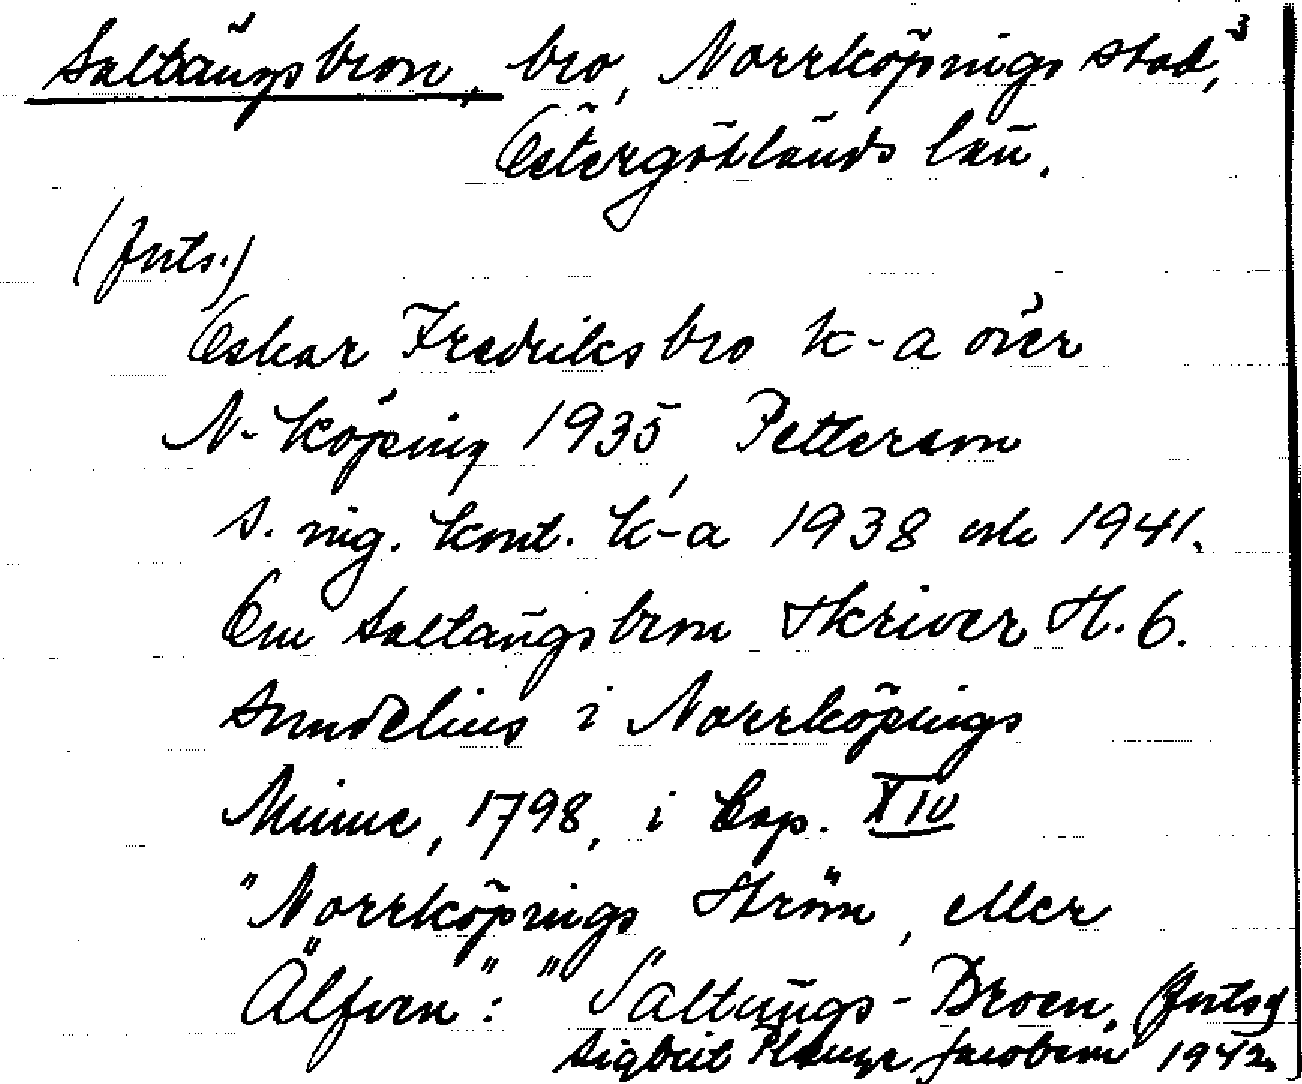 Saltängsbron, bro, Norrköpings stad, 3
Östergötlands län.
(forts.)
Oskar Fredriks bro k-a över
N-köping 1935, Petterson
s. ing. kont. k-a 1938 och 1941.
Om Saltängsbron skriver H. G.
Sundelius i Norrköpings
Minne, 1798, i Cap. XIV
"Norrköpings Ström, eller
Älfven": "Saltängs-Broen. (forts.)
Sigbrit Plænge Jacobson 1942.